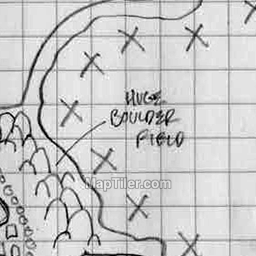 HUGE
BOULDER
FIELD
MapTiler.com